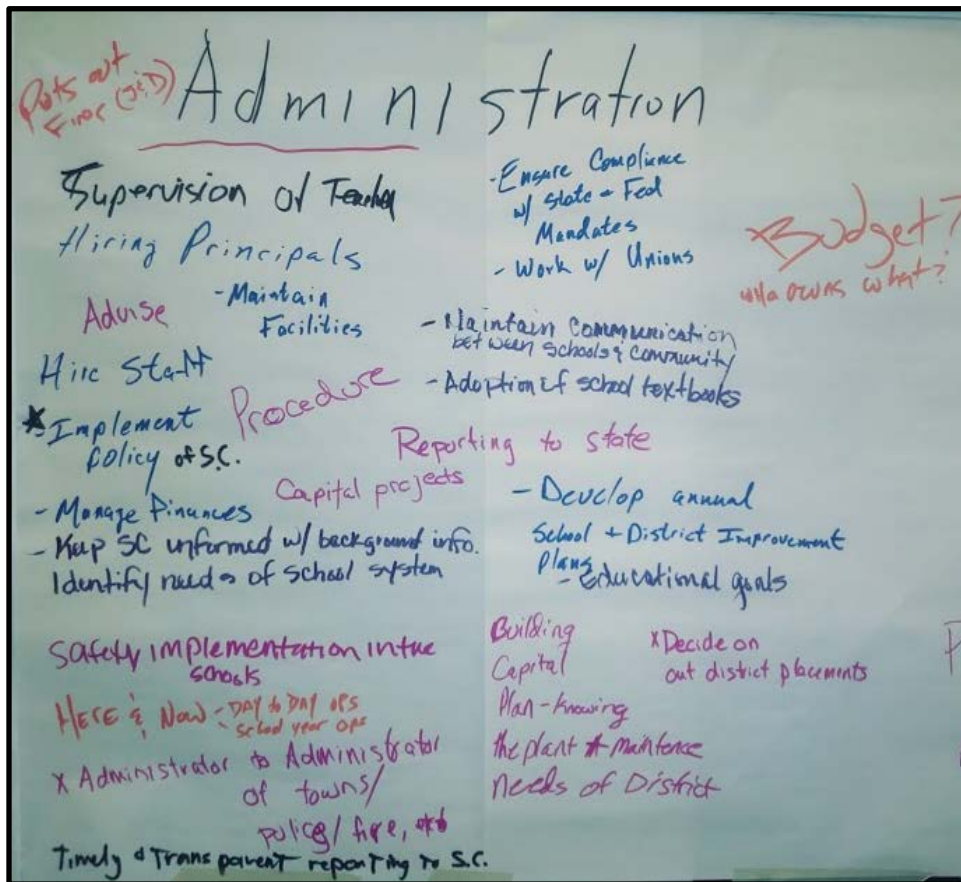 Puts out
Fires
Administration
Supervision of Teacher
Hiring Principals
Advise
- Maintain
Facilities
Hire Staff
Procedure
* Implement
Policy of S.C.
Capital projects
- Manage Finances
- Keep SC informed w/ background info.
Identify needs of school system
Safety implementation in the
schools
Here & Now - Day to Day ops
- School year ops
x Administrator to Administrator
of towns/
police/fire,
Timely & Transparent reporting to S.C.
- Ensure Compliance
w/ state + Fed
Mandates
- Work w/ Unions
- Maintain communication
between schools & community
- Adoption of school textbooks
Reporting to state
- Develop annual
School + District Improvement
Plans
- Educational goals
Building
Capital
Plan-knowing
the plant + maintence
needs of District
x Decide on
out district placements
x Budget?
who owns what?